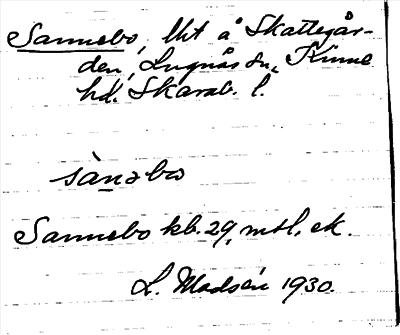 Sannebo, lht å Skattegår-
den, Lugnås sn, Kinne
hd. Skarab. l.
sànəbo
Sannebo kb. 29, mtl, ek.
L. Madsén 1930.